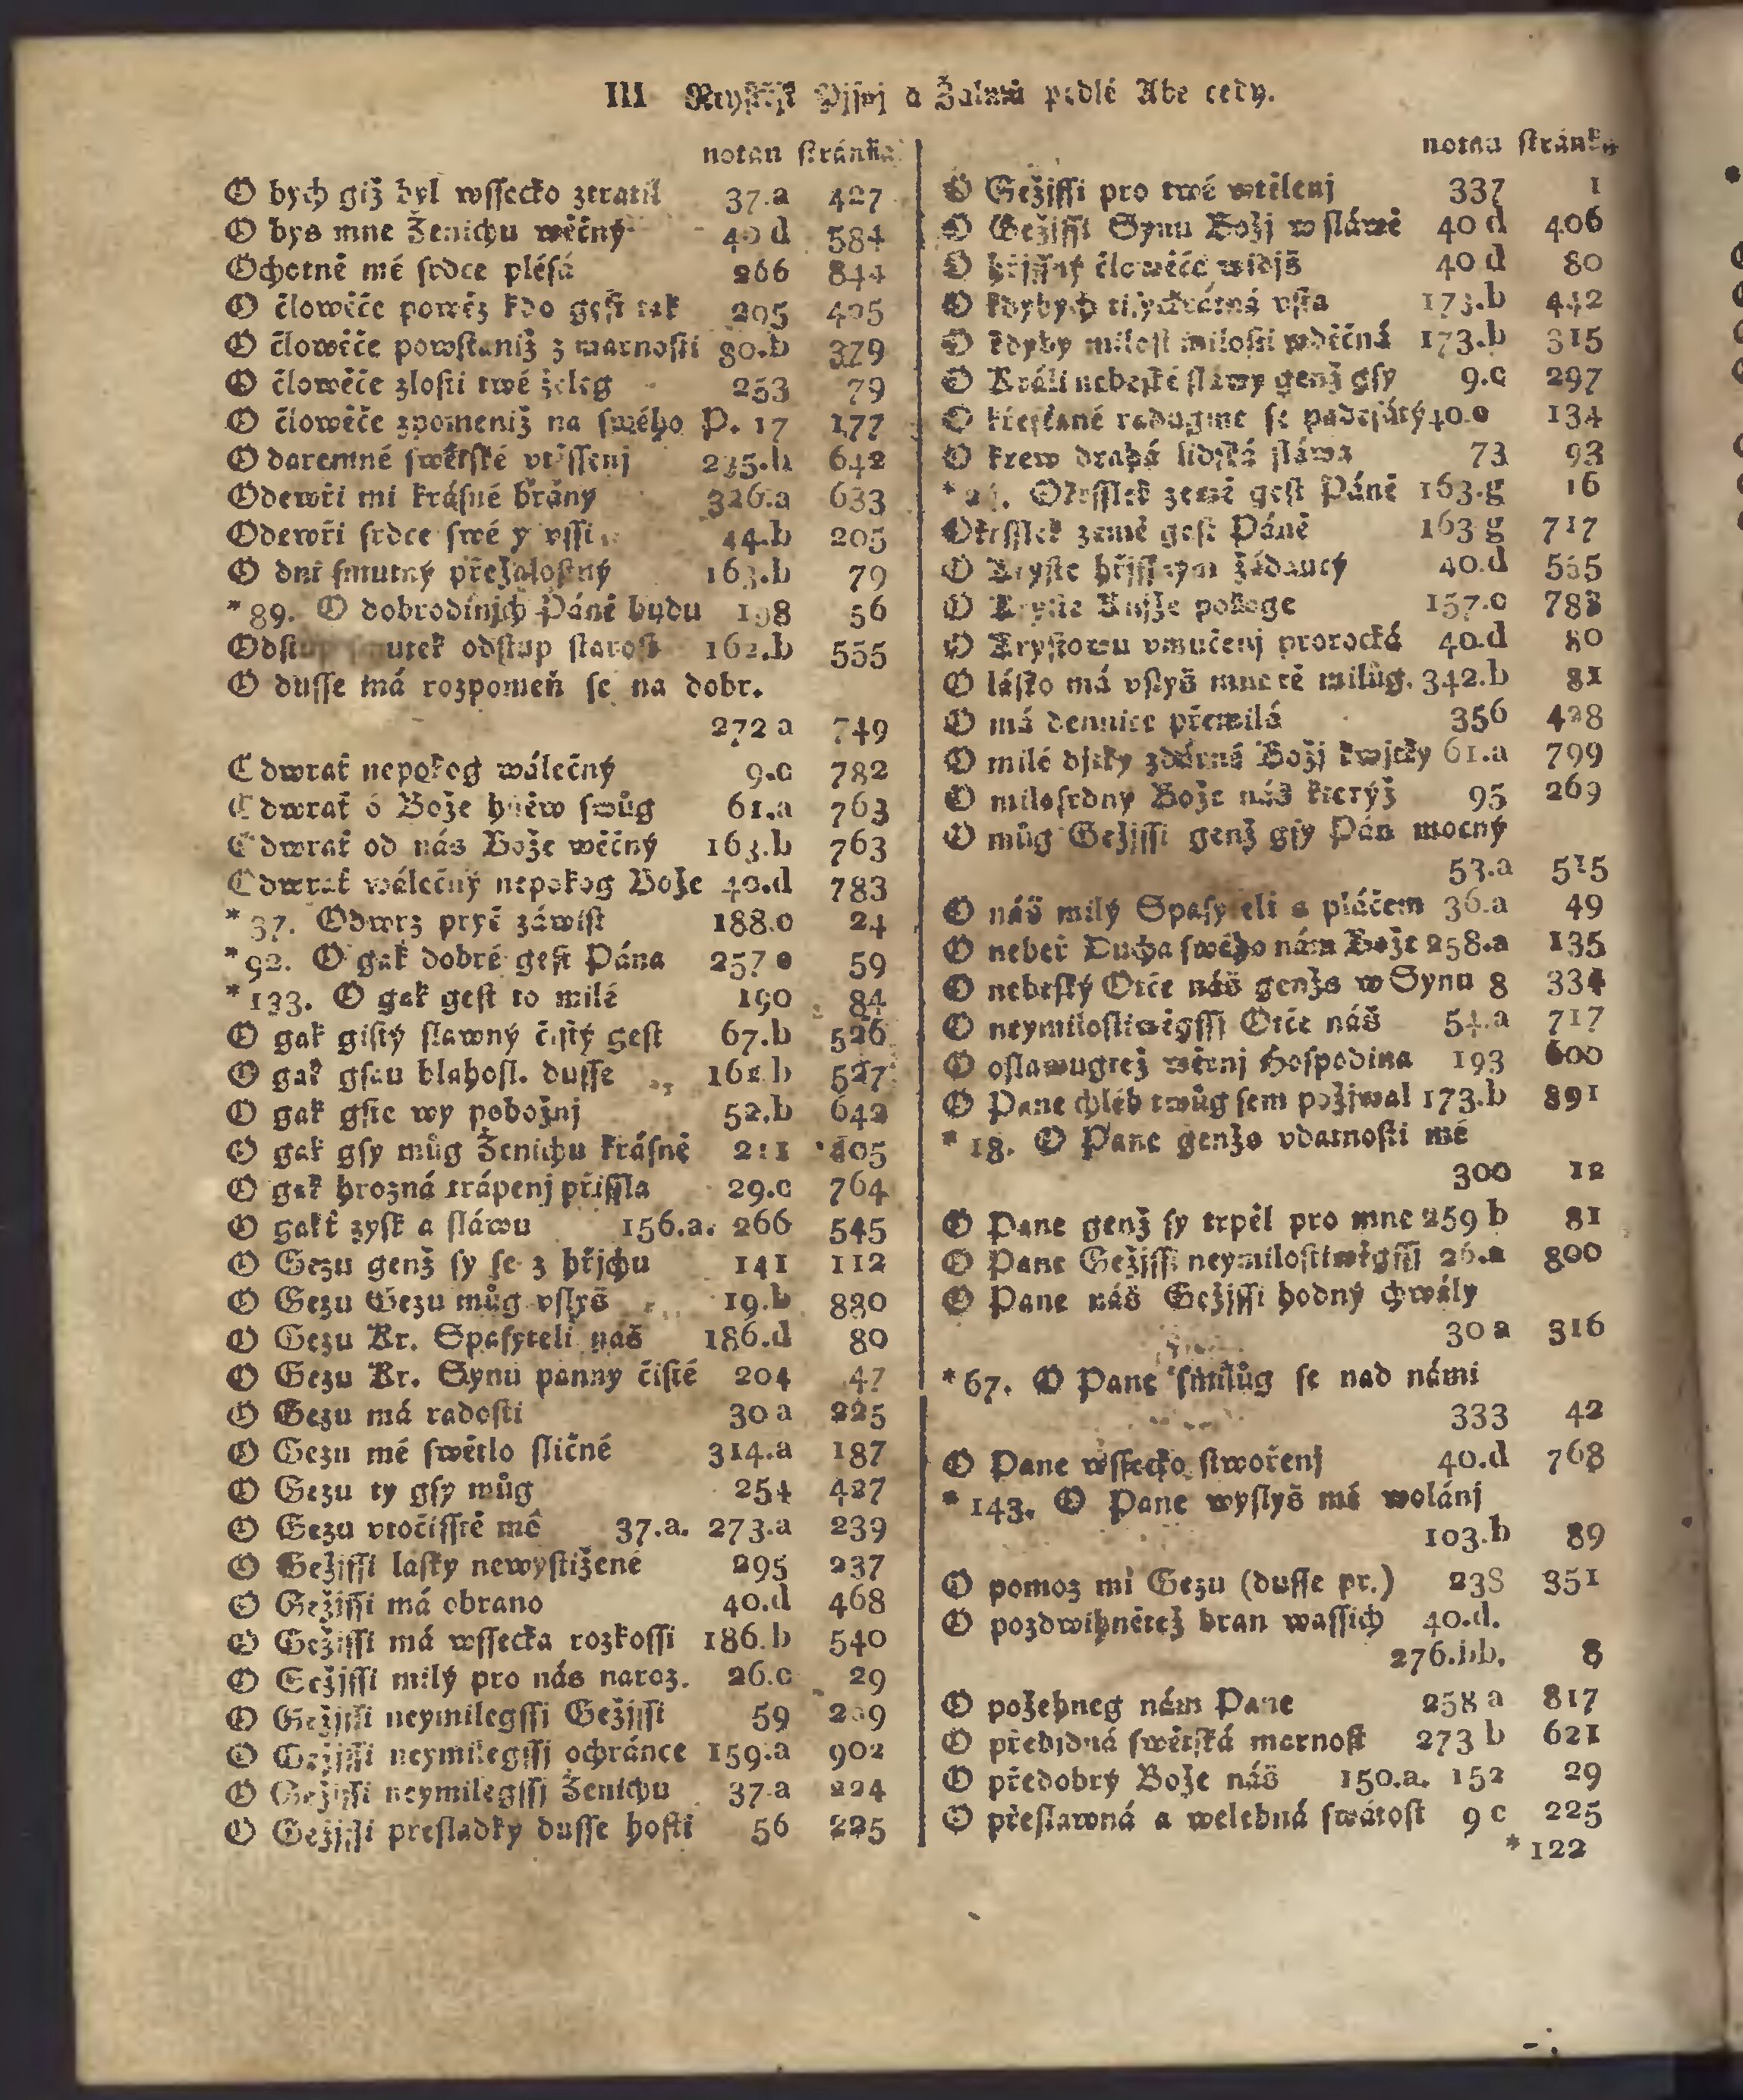 III Regſtřjk Pjſnj a Žalmů podlé Abe cedy.
notau ſtránka
O bych giž byl wſſecko ztratil 37.a 427
O bys mne Ženichu wěčný 40 d 584
Ochotně mé ſrdce pléſá 266 844
O člowěče powěz kdo geſt tak 205 405
O člowěče powſtaniž z marnoſti 80.b 379
O člowěče zloſti twé želeg 253 79
O člowěče zpomeniž na ſwého P. 17 177
O daremné ſwětſké vtěſſenj 235.b 642
Odewři mi kráſné brány 326.a 633
Odewři ſrdce ſwé y vſſi 44.b 205
O dni ſmutný přežaloſtný 163.b 79
*89. O dobrodinjch Páně budu 198 56
Odſtup ſmutek odſtup staroſt 162.b 555
O duſſe má rozpomeň ſe na dobr.
272 a 749
Odwrať nepokog wálečný 9.c 782
Odwrať ó Bože hněw ſwůg 61.a 763
Odwrať od nás Bože wěčný 163.b 763
Odwrať wálečný nepokog Bože 40.d 783
*37. Odwrz pryč záwiſt 188.o 24
*92. O gak dobré geſt Pána 257 e 59
*133. O gak geſt to milé 190 84
O gak giſtý ſlawný čiſtý geſt 67.b 526
O gak gſau blahoſl. duſſe 162 b 527
O gak gſte wy pobožnj 52.b 642
O gak gſy můg Ženichu kráſně 211 805
O gak hrozná trápenj přiſſla 29.c 764
O gakť zyſk a ſláwu 156.a. 266 545
O Gezu genž ſy ſe z hřjchu 141 112
O Gezu Gezu můg vſlyš 19.b 880
O Gezu Kr. Spaſyteli náš 186.d 80
O Gezu Kr. Synu panny čiſté 204 47
O Gezu má radoſti 30 a 225
O Gezu mé ſwětlo ſličné 314.a 187
O Gezu ty gſy můg 254 427
O Gezu vtočiſſtě mé 37.a. 273.a 239
O Gežiſſi laſky newyſtižené 295 237
O Gežiſſi má obrano 40.d 468
O Gežjſſi má wſſecka rozkoſſi 186.b 540
O Gežjſſi milý pro nás naroz. 26.c 29
O Gežjſſi neymilegſſi Gežjſſi 59 209
O Gežjſſi neymilegſſj ochránce 159.a 902
O Gežjſſi neymilegſſj Ženichu 37.a 224
O Gežjſſi přeſladký duſſe hoſti 56 225
notau ſtránka
O Gežjſſi pro twé wtělenj 337 1
O Gežjſſi Synu Božj w ſláwě 40 d 406
O hřjſſný člowěče widjš 40 d 80
O kdybych tiſyckrátná vſta 173.b 442
O kdyby miloſt miloſti wděčná 173.b 315
O Králi nebeſké ſláwy genž gſy 9.c 297
O křeſťané radugme ſe 40.o 134
O krew drahá lidſká ſláwa 73 93
Okrſſlek země geſt Páně 163.g 16
Okrſſlek země geſt Páně 163 g 717
O Kryſte hřjſſným žádaucý 40.d 555
O Kryſte Knjže pokoge 157.o 788
O Kryſtowu vmučenj prorocká 40.d 80
O láſko má vſlyš mne tě milůg. 342.b 81
O má dennice přemilá 356 428
O milé djtky zdárné Božj kwjtky 61.a 799
O miloſrdný Bože náš kterýž 95 269
O můg Gežjſſi genž gſy Pán mocný
53.a 515
O náš milý Spaſyteli s pláčem 36.a 49
O neber Ducha ſwého nám Bože 258.a 135
O nebeſký Otče náš genžs w Synu 8 334
O neymiloſtiwěgſſj Otče náš 54.a 717
O oſlawugtež wěrnj Hoſpodina 193 600
O Pane chléb twůg ſem požjwal 173.b 891
*18. O Pane genžs vdatnoſti mé
300 12
O Pane genž ſy trpěl pro mne 259 b 81
O Pane Gežjſſi neymiloſtiwěgſſj 26.a 800
O Pane náš Gežjſſi hodný chwály
30 a 316
*67. O Pane ſmilůg ſe nad námi
333 42
O Pane wſſecko ſtwořenj 40.d 768
*143. O Pane wyſlyš mé wolánj
103.b 89
O pomoz mi Gezu (duſſe pr.) 238 351
O pozdwihnětež bran waſſich 40.d.
276.bb, 8
O požehneg nám Pane 258 a 817
O přebjdná ſwětſká marnoſt 273 b 621
O předobrý Bože náš 150.a. 152 29
O přeſlawná a welebná ſwátoſt 9 c 225
*122